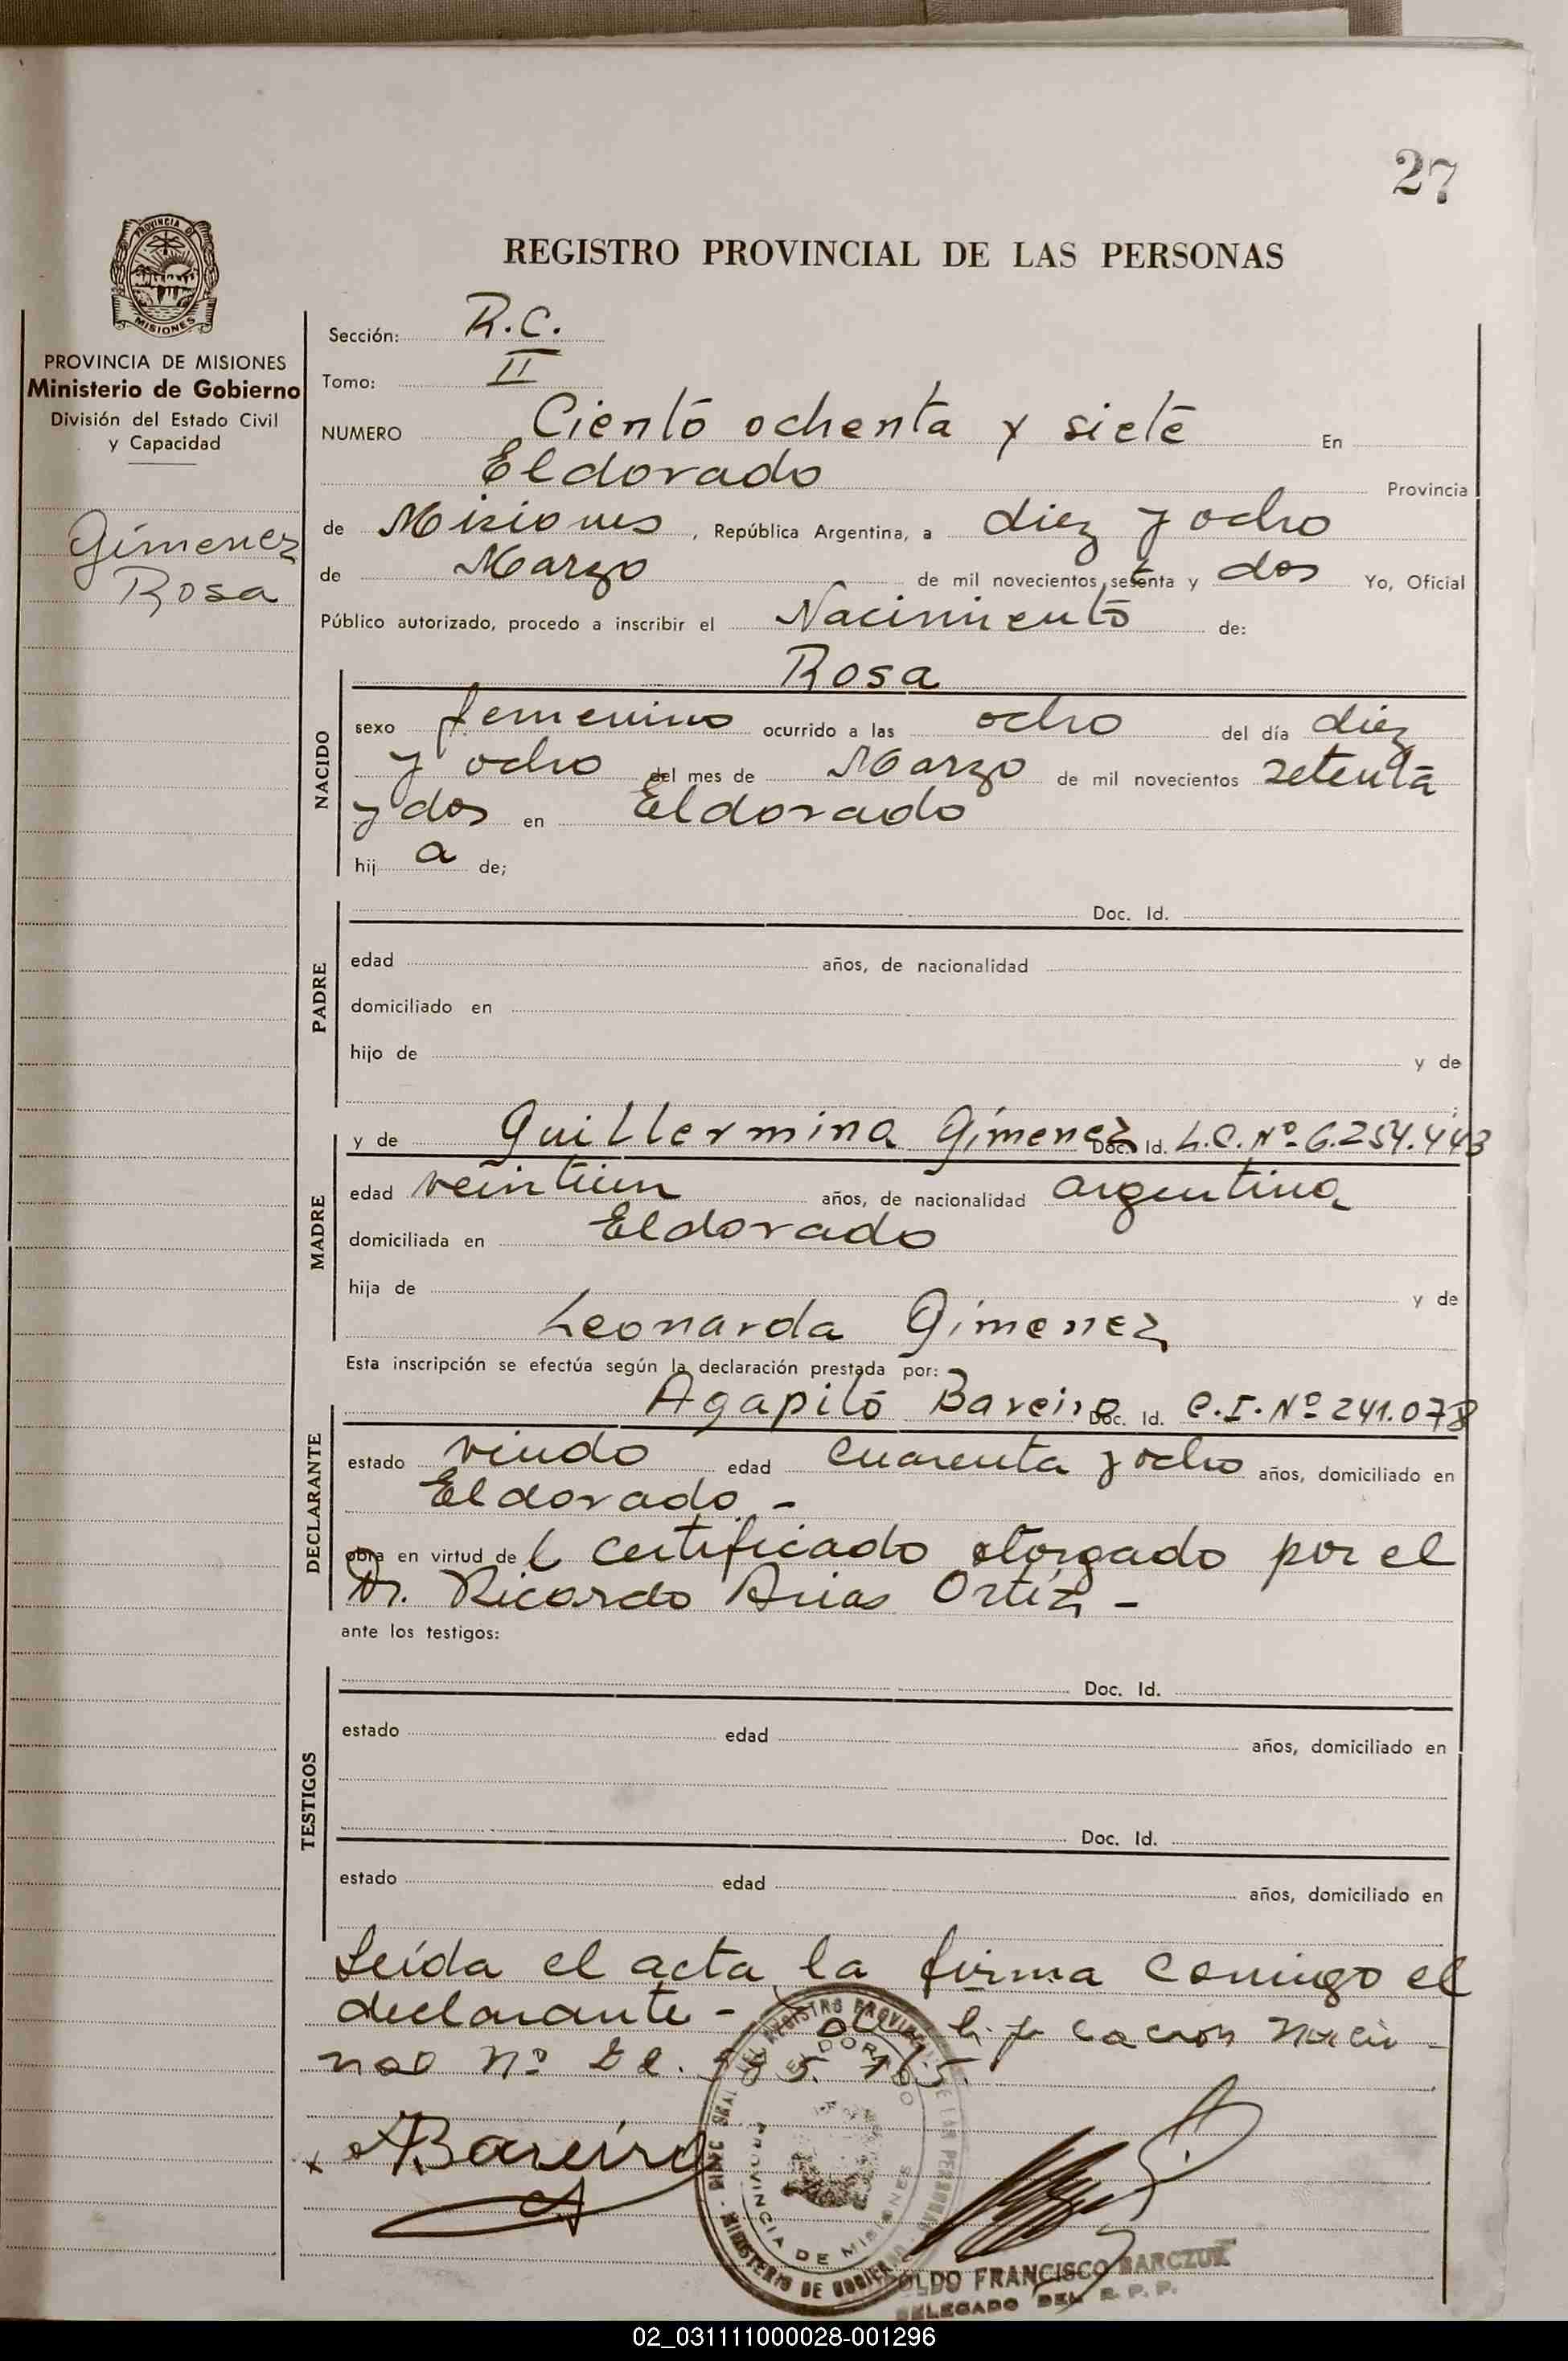 27
PROVINCIA DE
MISIONES
PROVINCIA DE MISIONES
Ministerio de Gobierno
División del Estado Civil
y Capacidad
Gimenez
Rosa
REGISTRO PROVINCIAL DE LAS PERSONAS
Sección: R.C.
Tomo: II
NUMERO Ciento ochenta y siete En
Eldorado Provincia
de Misiones, República Argentina, a diez y ocho
de Marzo de mil novecientos setenta y dos Yo, Oficial
Público autorizado, procedo a inscribir el Nacimiento de:
Rosa
NACIDO
sexo femenino ocurrido a las ocho del día diez
y ocho del mes de Marzo de mil novecientos setenta
y dos en Eldorado
hij a de;
PADRE
Doc. Id.
edad años, de nacionalidad
domiciliado en
hijo de y de
MADRE
y de Guillermina Gimenez Doc. Id. L.C. Nº 6.254.443
edad veintiun años, de nacionalidad argentina
domiciliada en Eldorado
hija de y de
Leonarda Gimenez
Esta inscripción se efectúa según la declaración prestada por:
DECLARANTE
Agapito Bareiro Doc. Id. C.I. Nº 241.078
estado viudo edad cuarenta y ocho años, domiciliado en
Eldorado -
obra en virtud del certificado otorgado por el
Dr. Ricardo Arias Ortíz -
ante los testigos:
TESTIGOS
Doc. Id.
estado edad años, domiciliado en
Doc. Id.
estado edad años, domiciliado en
Leída el acta la firma comigo el
declarante -
nal Nº
ABareiro
REGISTRO PROVINCIAL DE LAS PERSONAS
ELDORADO
PROVINCIA DE MISIONES
MINISTERIO DE GOBIERNO
FRANCISCO BARCZUK
DELEGADO DEL R. P. P.
02_031111000028-001296